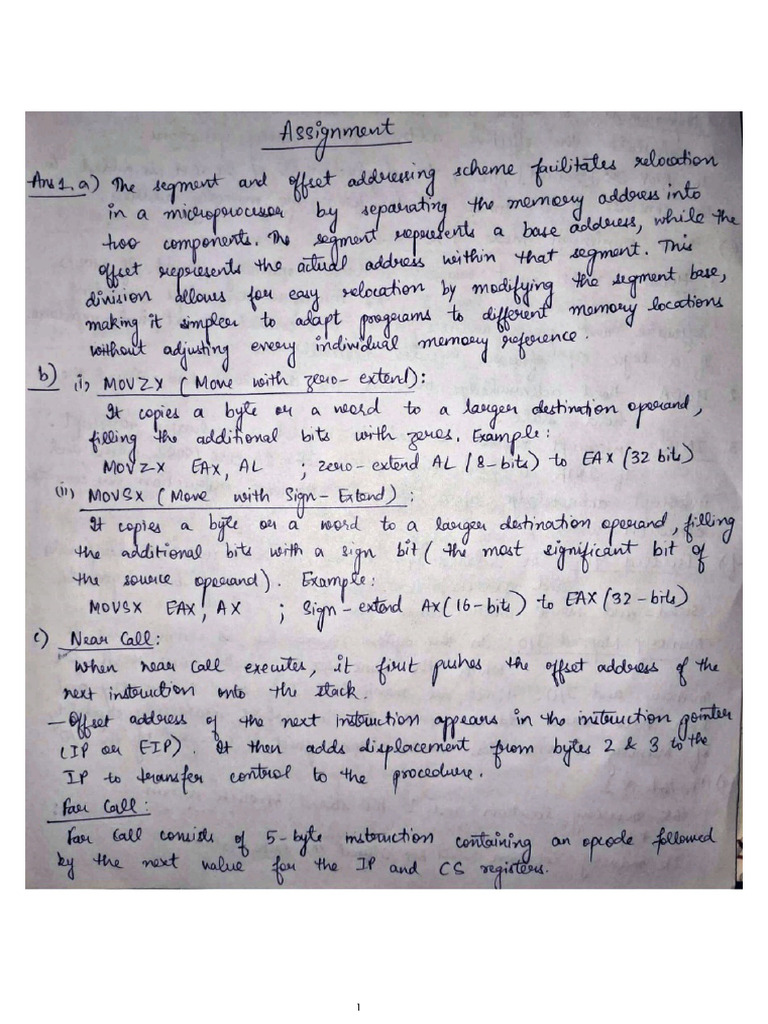 Assignment
Ans 1. a) The segment and offset addressing scheme facilitates relocation
in a microprocessor by separating the memory address into
two components. The segment represents a base address, while the
offset represents the actual address within that segment. This
division allows for easy relocation by modifying the segment base,
making it simpler to adapt programs to different memory locations
without adjusting every individual memory reference.
b) (i) MOVZX (Move with zero-extend):
It copies a byte or a word to a larger destination operand,
filling the additional bits with zeros. Example:
MOVZX EAX, AL ; zero-extend AL (8-bits) to EAX (32 bits)
(ii) MOVSX (Move with Sign-Extend):
It copies a byte or a word to a larger destination operand, filling
the additional bits with a sign bit (the most significant bit of
the source operand). Example:
MOVSX EAX, AX ; Sign-extend AX (16-bits) to EAX (32-bits)
c) Near Call:
When near call executes, it first pushes the offset address of the
next instruction onto the stack.
— Offset address of the next instruction appears in the instruction pointer
(IP or EIP). It then adds displacement from bytes 2 & 3 to the
IP to transfer control to the procedure.
Far Call:
Far Call consists of 5-byte instruction containing an opcode followed
by the next value for the IP and CS registers.
1